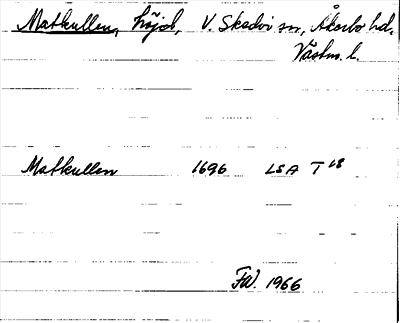 Matkullen, höjd, V. Skedvi sn, Åkerbo hd,
Västm. l.
Matkullen 1696 LSA T 18
FW. 1966